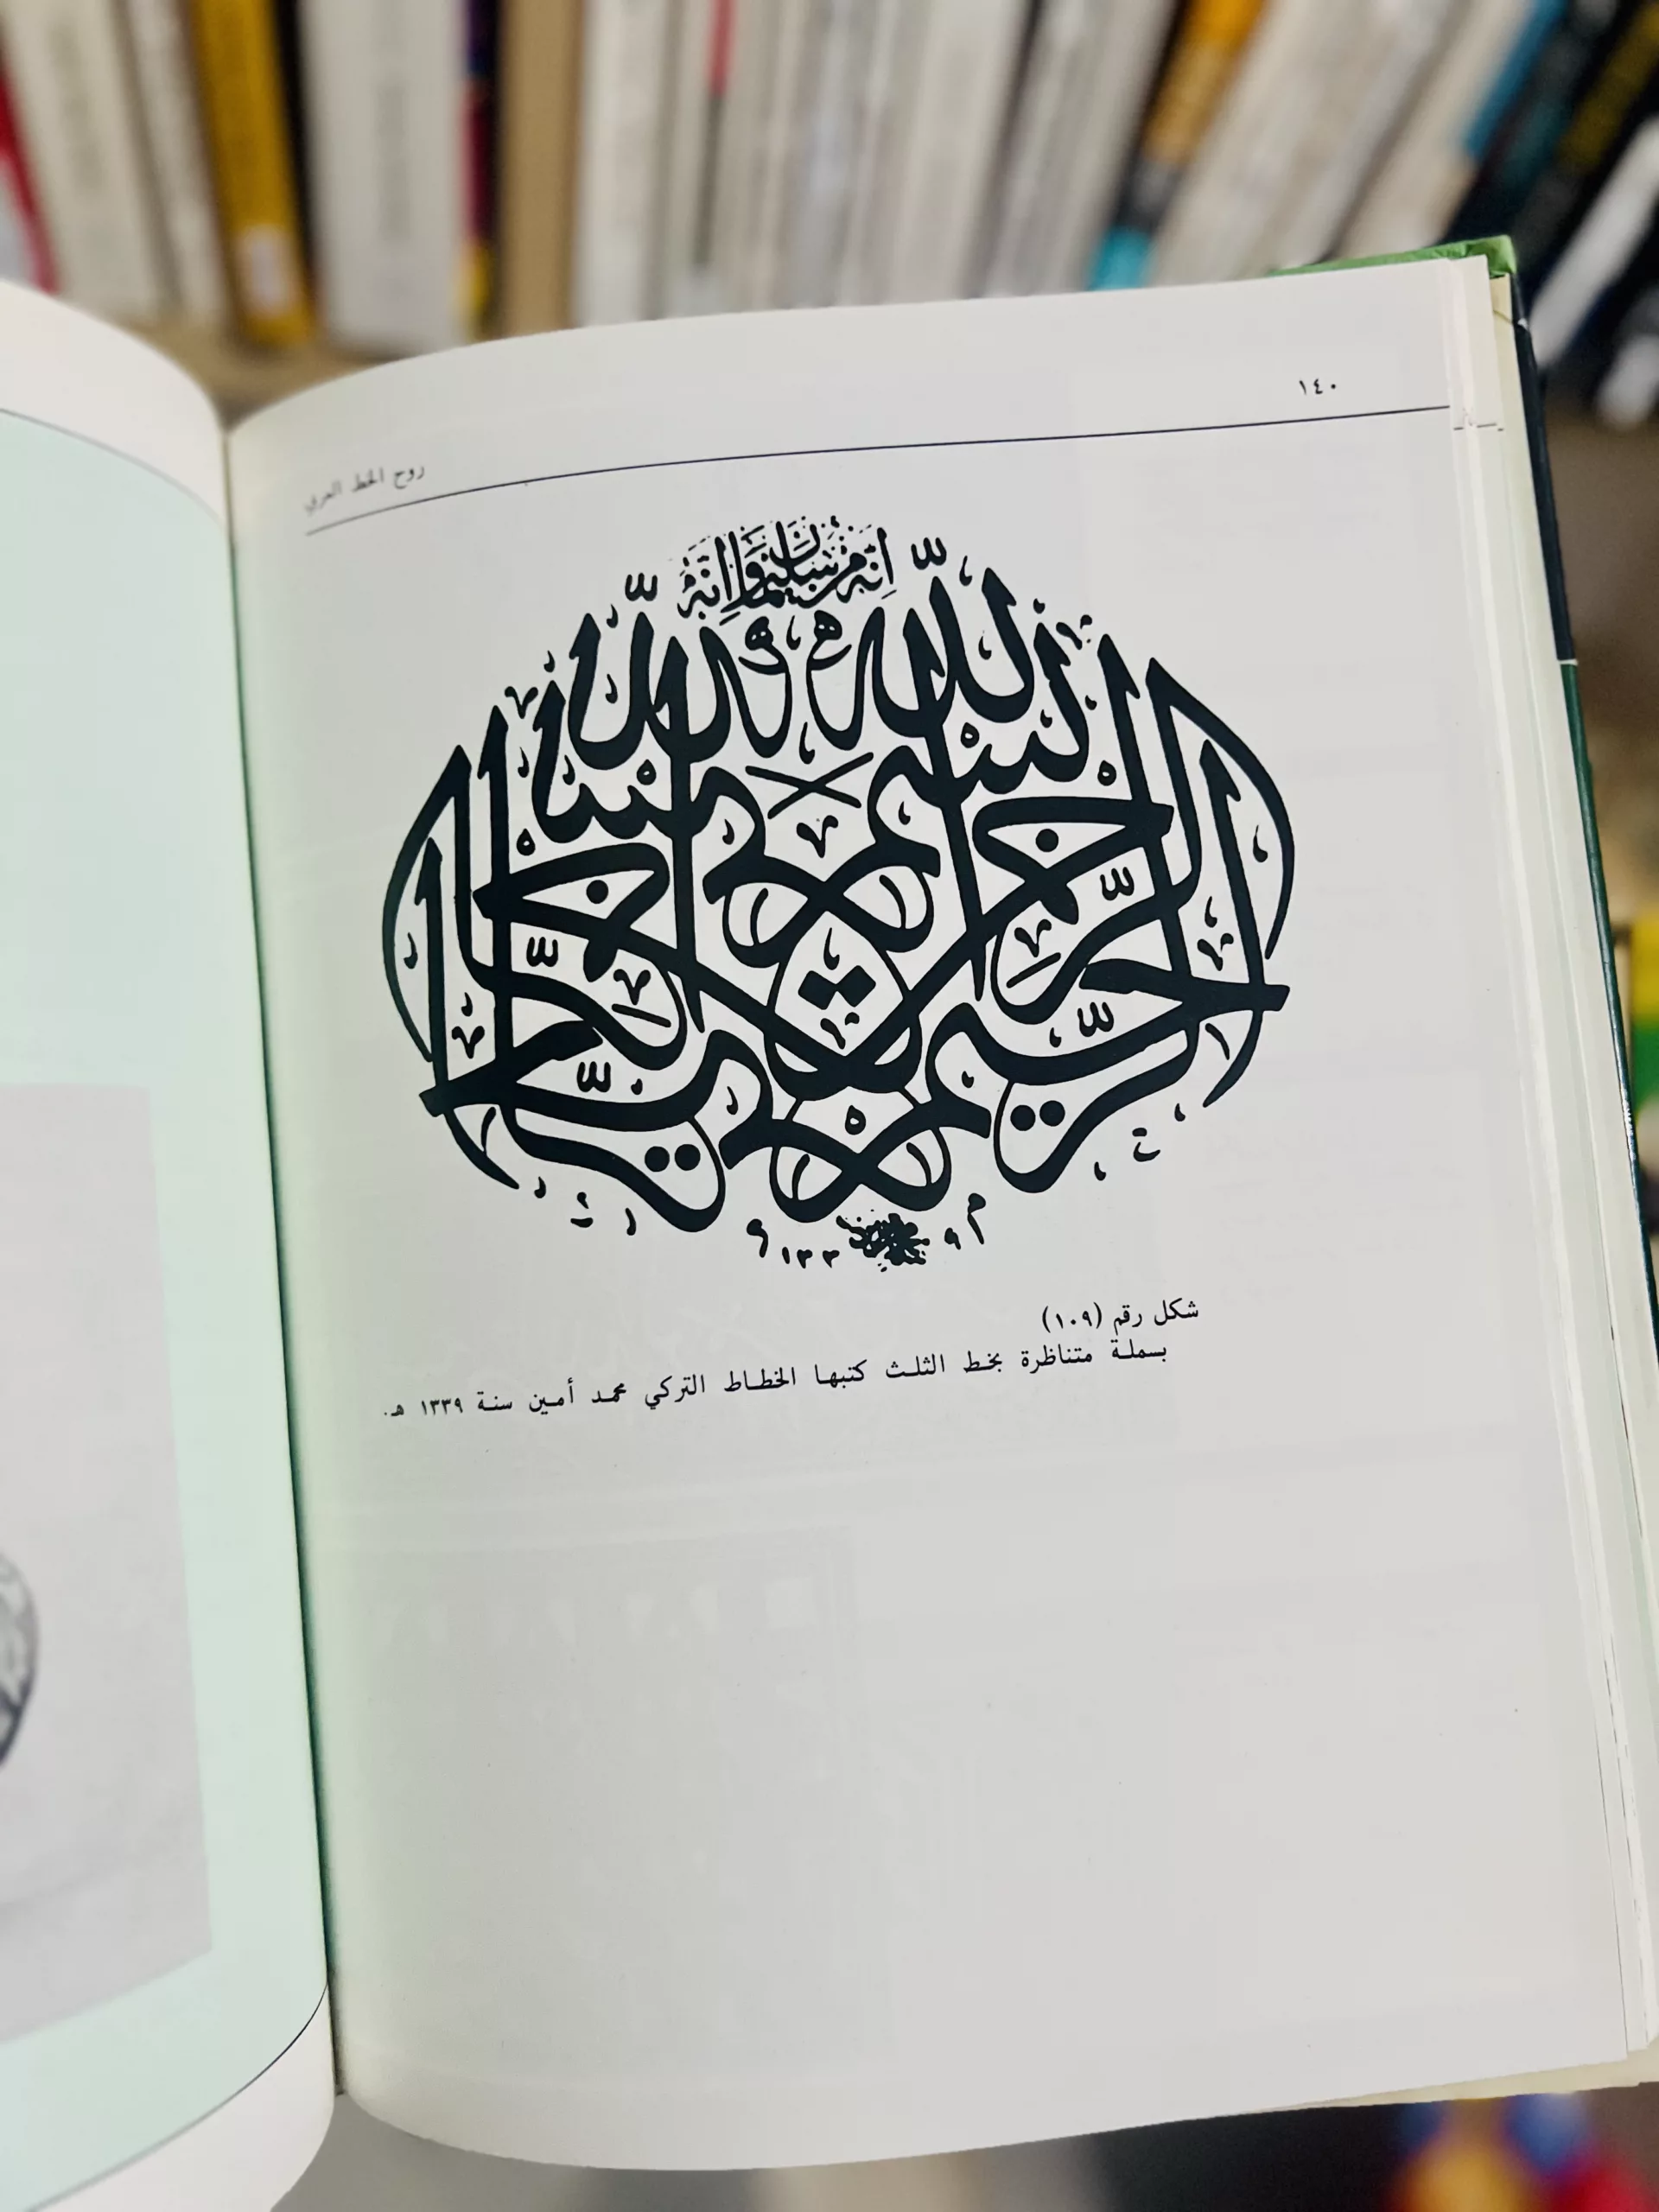 ١٤٠
روح الخط العربي
إنه من سليمان وإنه
بسم الله الرحمن الرحيم
١٣٣٩
شكل رقم (١٠٩)
بسملة متناظرة بخط الثلث كتبها الخطاط التركي محمد أمين سنة ١٣٣٩ هـ.